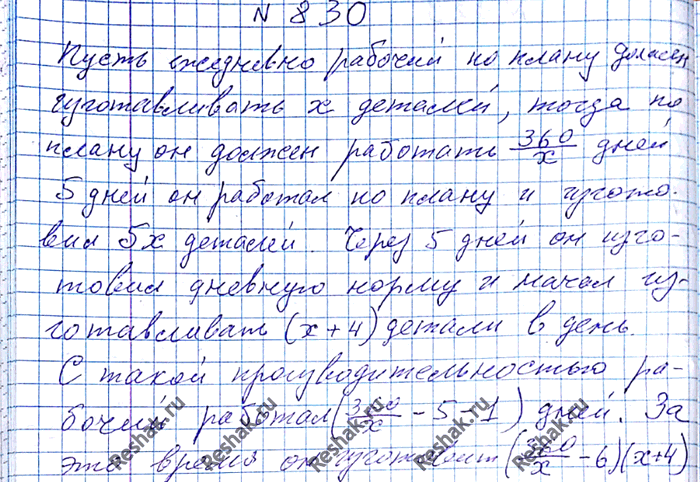 N 830
Пусть ежедневно рабочий по плану должен
изготавливать x деталей, тогда по
плану он должен работать 360/x дней
5 дней он работал по плану и изгото-
вил 5x деталей Через 5 дней он изго-
товил дневную норму и начал из-
готавливать (x+4) детали в день.
С такой производительностью ра-
бочий работал (360/x - 5 - 1) дней. За
это время он изготовит (360/x - 6)(x+4)
Reshak.ru
Reshak.ru
Reshak.ru
Reshak.ru
Reshak.ru